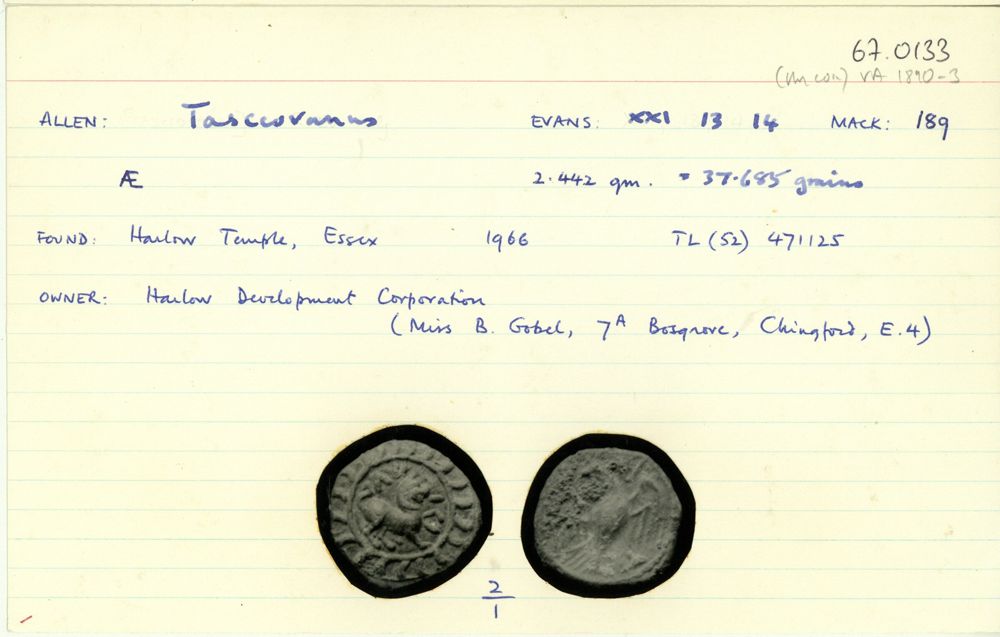 67.0133
VA 1890-3
ALLEN: Tasciovanus EVANS: XXI 13 14 MACK: 189
Æ 2.442 gm. = 37.685 grains
FOUND: Harlow Temple, Essex 1966 TL (52) 471125
OWNER: Harlow Development Corporation
(Miss B. Gobel, 7A Bosgrove, Chingford, E.4)
2
1